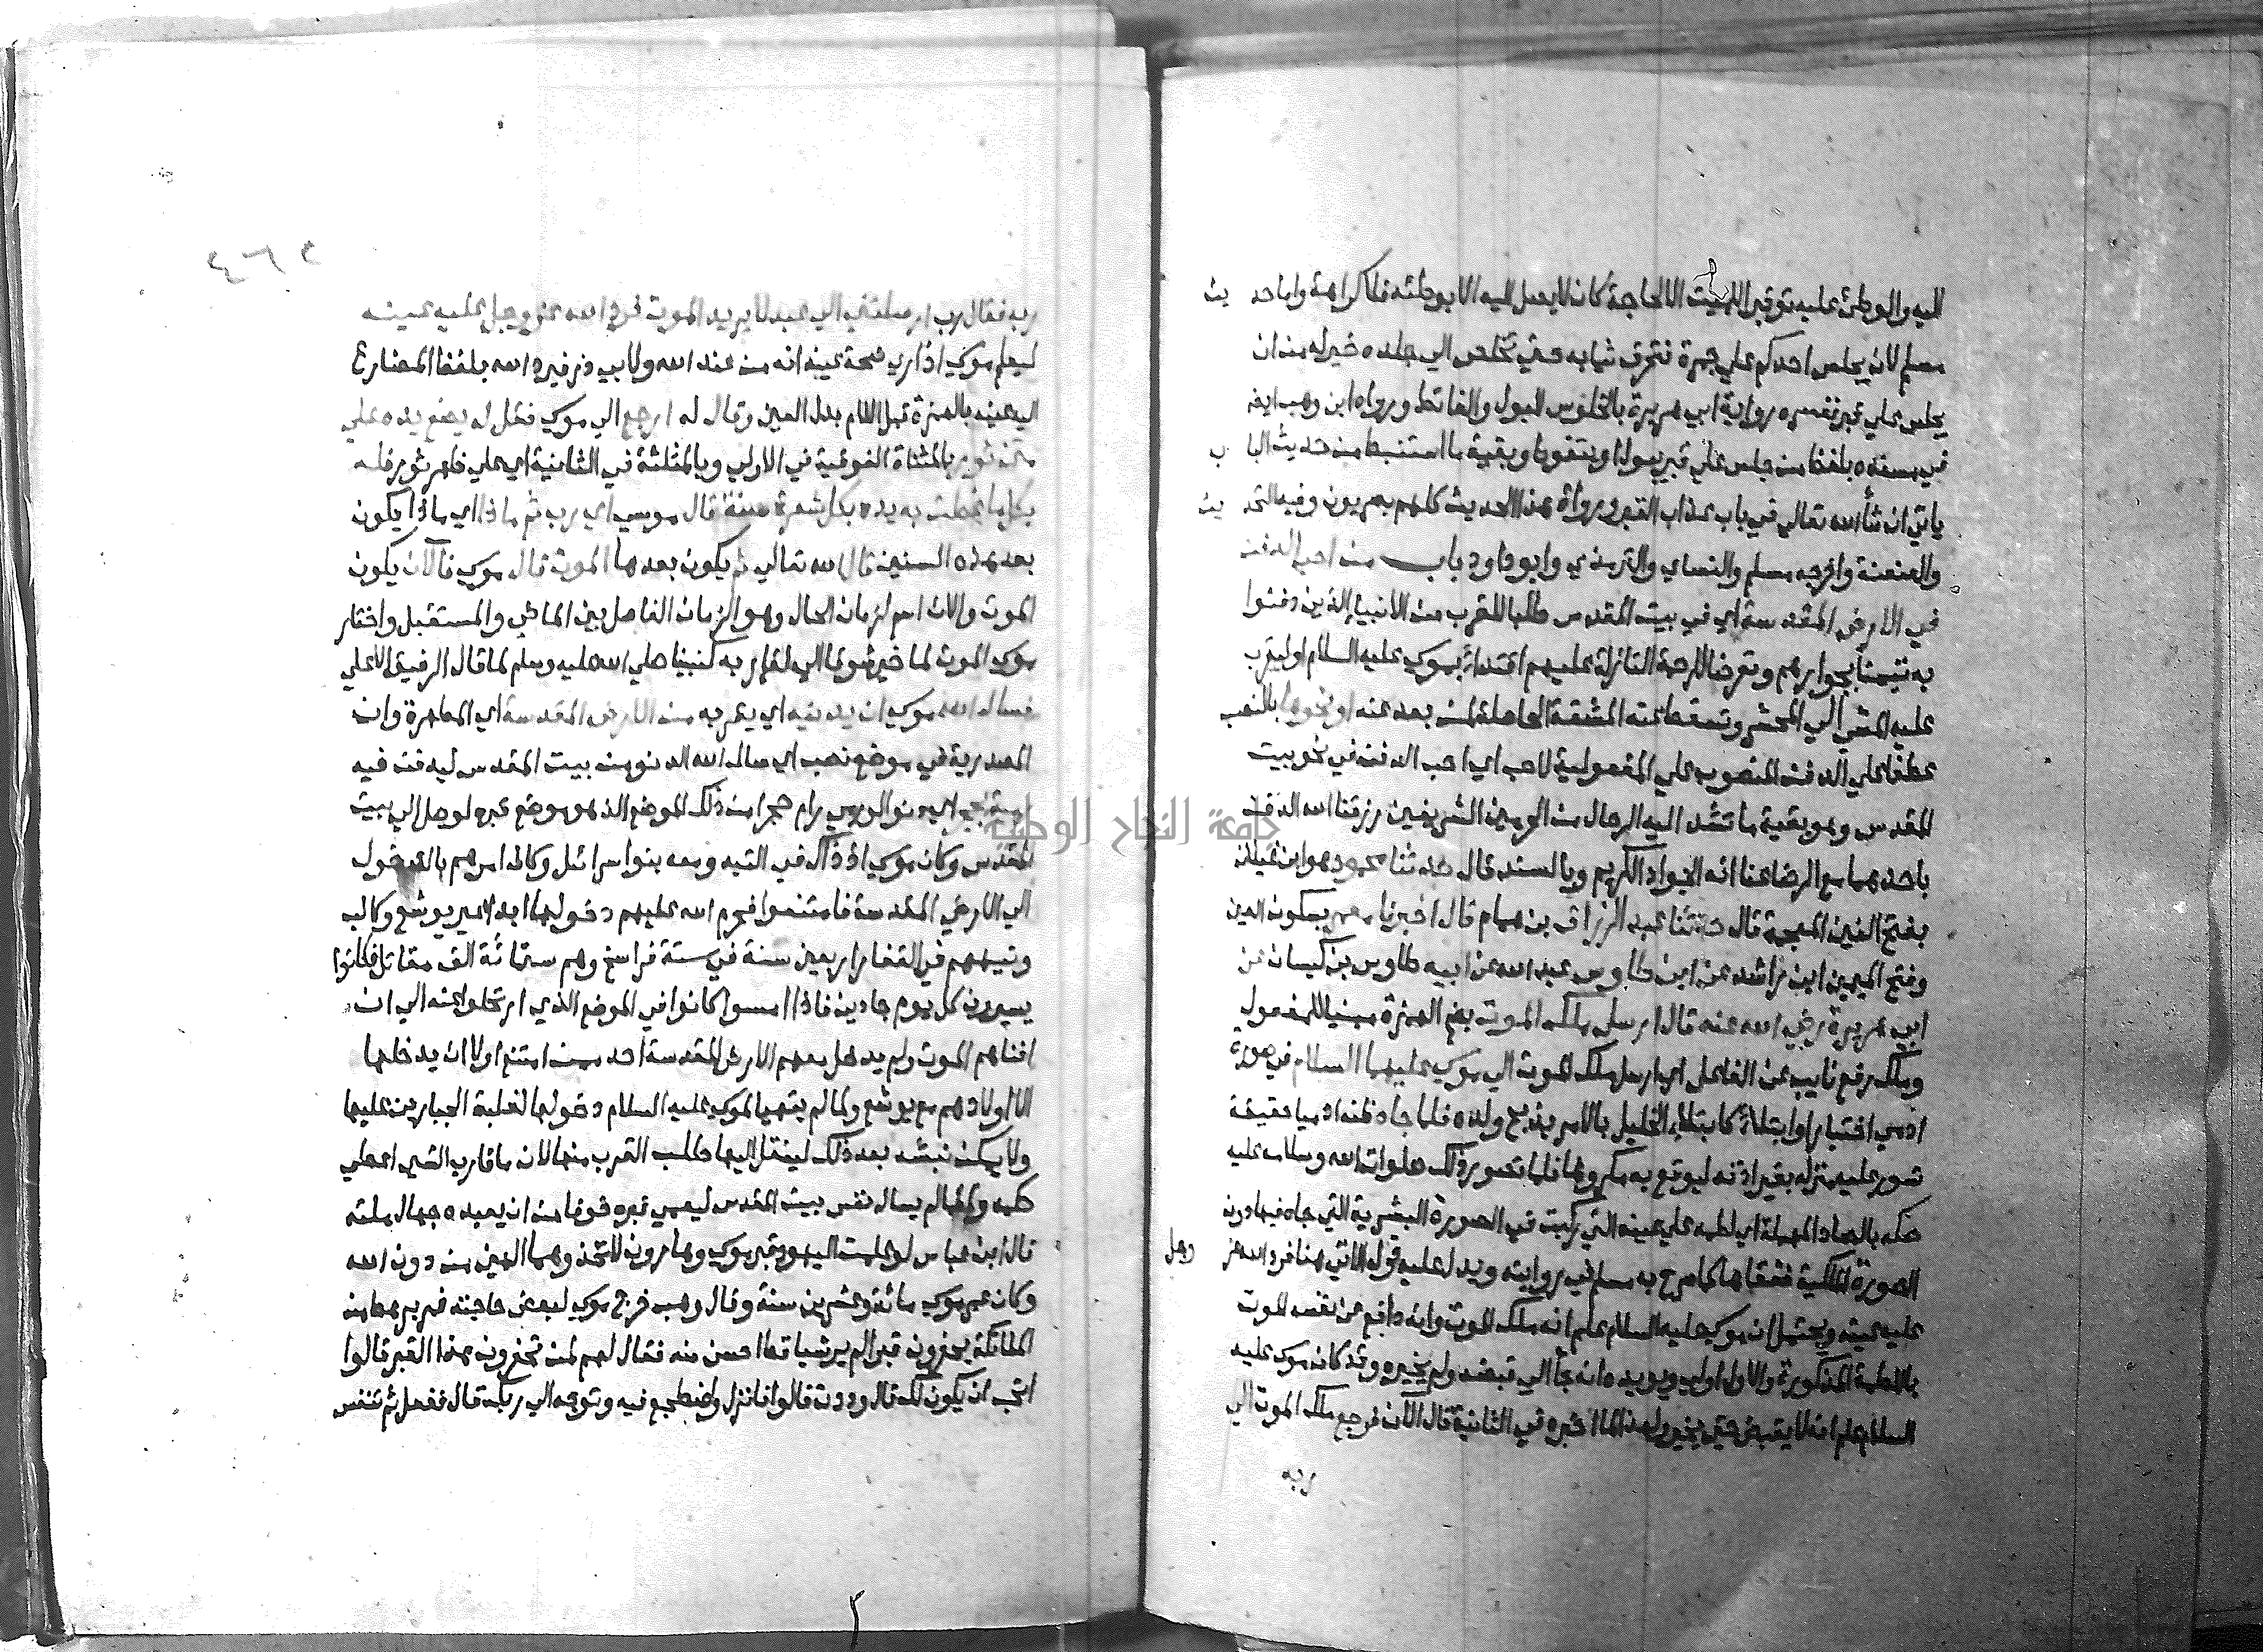 اليه والوطئ عليه توقير للميت الا لحاجة كان لا يصل اليه الا بوطئه فلا كراهة واما حديث
مسلم لان يجلس احدكم علي جمرة فتحرق ثيابه حتي تخلص الي جلده خير له من ان
يجلس علي قبر ففسره رواية ابي هريرة بالجلوس للبول والغائط ورواه ابن وهب ايضا
في مسنده بلفظ من جلس علي قبر يبول او يتغوط وبقية ما استنبط من حديث الباب
ياتي ان شأ الله تعالي في باب عذاب القبر ورواة هذا الحديث كلهم بصريون وفيه التحديث
والعنعنة واخرجه مسلم والنساي والترمذي وابو داود باب من احب الدفن
في الارض المقدسة اي في بيت المقدس طلبا للقرب من الانبيا الذين دفنوا
به تيمنا بجوارهم وتعرضا للرحمة النازلة عليهم اقتداء بموسي عليه السلام او ليقرب
عليه المشي الي المحشر وتسقط عنه المشقة الحاصلة لمن بعد عنه او نحوها بالنصب
عطفا علي الدفن المنصوب علي المفعولية لاحب اي احب الدفن في نحو بيت
المقدس وهو بقية ما تشد اليه الرحال من الحرمين الشريفين رزقنا الله الدفن
باحدهما مع الرضا عنا انه الجواد الكريم وبالسند قال حدثنا محمود هو ابن غيلان
بفتح الغين المعجمة قال حدثنا عبد الرزاق بن همام قال اخبرنا معمر بسكون العين
وفتح الميمين ابن راشد عن ابن طاوس عبد الله عن ابيه طاوس بن كيسان عن
ابي هريرة رضي الله عنه قال ارسل ملك الموت بضم الهمزة مبنيا للمفعول
وملك رفع نايب عن الفاعل اي ارسل ملك الموت الي موسي عليهما السلام في صورة
ادمي اختبارا وابتلاء كابتلاء الخليل بالامر بذبح ولده فلما جاه ظنه ادميا حقيقة
تسور عليه منزله بغير اذنه ليوقع به مكروها فلما تصور ذلك صلوات الله وسلامه عليه
صكه بالصاد المهملة اي لطمه علي عينه التي ركبت في الصورة البشرية التي جاه فيها دون
الصورة الملكية ففقاها كما صرح به مسلم في روايته ويدل عليه قوله الاتي هنا فرد الله عز وجل
عليه عينه ويحتمل ان موسي عليه السلام علم انه ملك الموت وانه دافع عن نفسه الموت
باللطمة المذكورة والاول اولي ويويده انه جأ الي قبضه ولم يخيره وقد كان موسي عليه
السلام علم انه لا يقبض حتي يخير ولهذا لما اخبره في الثانية قال الآن فرجع ملك الموت الي
ربه
ربه فقال رب ارسلتني الي عبد لا يريد الموت فرد الله عز وجل عليه عينه
ليعلم موسي اذا راي صحة عينه انه من عند الله ولابي ذر فيرد الله بلفظ المضارع
اليه عينه بالهمزة قبل اللام بدل العين وقال له ارجع الي موسي فقل له يضع يده علي
متن ثور بالمثناة الفوقية في الاولي وبالمثلثة في الثانية اي علي ظهر ثور فله
بكل ما غطت به يده بكل شعرة سنة قال موسي اي رب ثم ماذا اي ماذا يكون
بعد هذه السنين قال الله تعالي ثم يكون بعدها الموت قال موسي فالآن يكون
الموت والان اسم لزمان الحال وهو الزمان الفاصل بين الماضي والمستقبل واختار
موسي الموت لما خير شوقا الي لقاء ربه كنبينا صلي الله عليه وسلم لما قال الرفيق الاعلي
فسال الله موسي ان يدنيه اي يقربه من الارض المقدسة اي المطهرة وان
المصدرية في موضع نصب اي سال الله الدنو من بيت المقدس ليدفن فيه
رمية بحجر اي دنوا لو رمي رام حجرا من ذلك الموضع الذي هو موضع قبره لوصل الي بيت
المقدس وكان موسي اذ ذاك في التيه ومعه بنوا اسرائل وكان امرهم بالدخول
الي الارض المقدسة فامتنعوا فحرم الله عليهم دخولها ابدا غير يوشع وكالب
وتيههم في القفار اربعين سنة في ستة فراسخ وهم ستمائة الف مقاتل فكانوا
يسيرون كل يوم جادين فاذا امسوا كانوا في الموضع الذي ارتحلوا عنه الي ان
افناهم الموت ولم يدخل معهم الارض المقدسة احد ممن امتنع اولا ان يدخلها
الا اولادهم مع يوشع ولما لم يتهيا لموسي عليه السلام دخولها لغلبة الجبارين عليها
ولا يمكن نبشه بعد ذلك لينقل اليها طلب القرب منها لان ما قارب الشي اعطي
حكمه وانما لم يسال نفس بيت المقدس ليعمي قبره خوفا من ان يعبده جهال ملته
قال ابن عباس لو علمت اليهود قبر موسي وهارون لاتخذوهما الهين من دون الله
وكان عمر موسي مائة وعشرين سنة وقال وهب خرج موسي لبعض حاجته فمر برهط من
الملائكة يحفرون قبرا لم ير شيا قط احسن منه فقال لهم لمن تحفرون هذا القبر قالوا
اتحب ان يكون لك قال وددت قالوا فانزل واضطجع فيه وتوجه الي ربك قال ففعل ثم تنفس
جامعة النجاح الوطنية